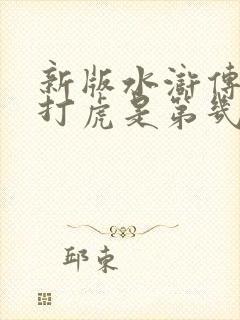 新版水滸傳
打虎是第幾
邱東